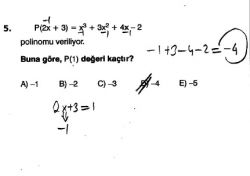 -1
5. P(2x + 3) = x³ + 3x² + 4x - 2
-1 -1 -1
polinomu veriliyor.
-1+3-4-2=-4
Buna göre, P(1) değeri kaçtır?
A) -1 B) -2 C) -3 D) -4 E) -5
2x+3=1
-1